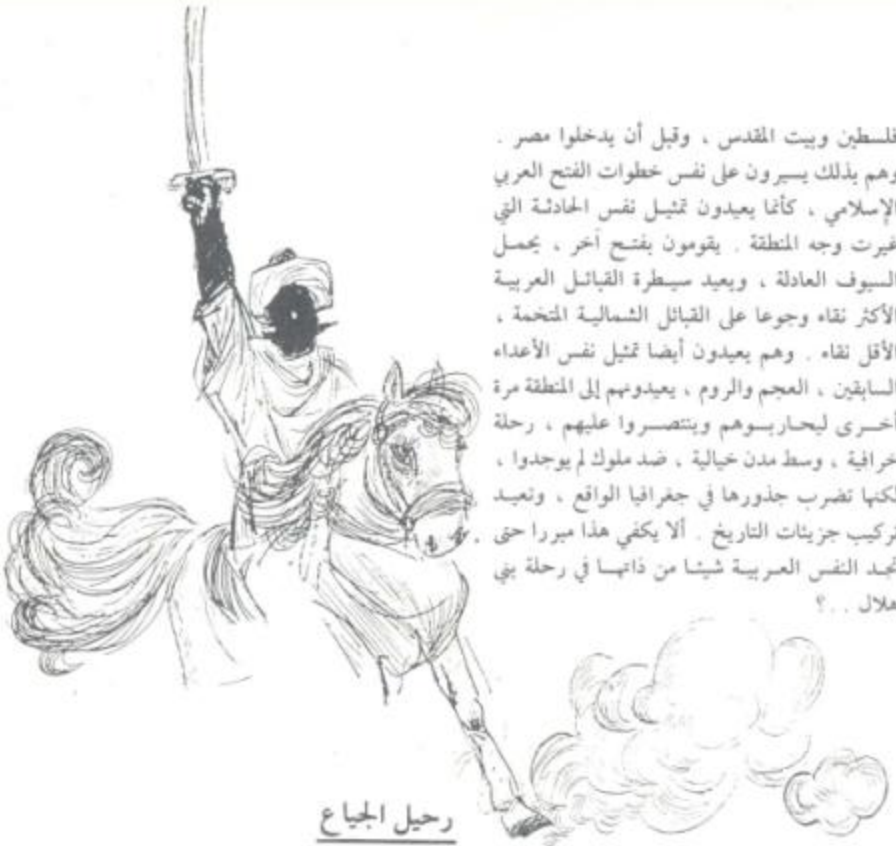 فلسطين وبيت المقدس ، وقبل أن يدخلوا مصر .
وهم بذلك يسيرون على نفس خطوات الفتح العربي
الإسلامي ، كأنما يعيدون تمثيل نفس الحادثة التي
غيرت وجه المنطقة . يقومون بفتح آخر ، يحمل
السيوف العادلة ، ويعيد سيطرة القبائل العربية
الأكثر نقاء وجوعا على القبائل الشمالية المتخمة ،
الأقل نقاء . وهم يعيدون أيضا تمثيل نفس الأعداء
السابقين ، العجم والروم ، يعيدونهم إلى المنطقة مرة
أخرى ليحاربوهم وينتصروا عليهم ، رحلة
خرافية ، وسط مدن خيالية ، ضد ملوك لم يوجدوا ،
لكنها تضرب جذورها في جغرافيا الواقع ، وتعيد
تركيب جزيئات التاريخ . ألا يكفي هذا مبررا حتى
تجد النفس العربية شيئا من ذاتها في رحلة بني
هلال . . ؟
رحيل الجياع